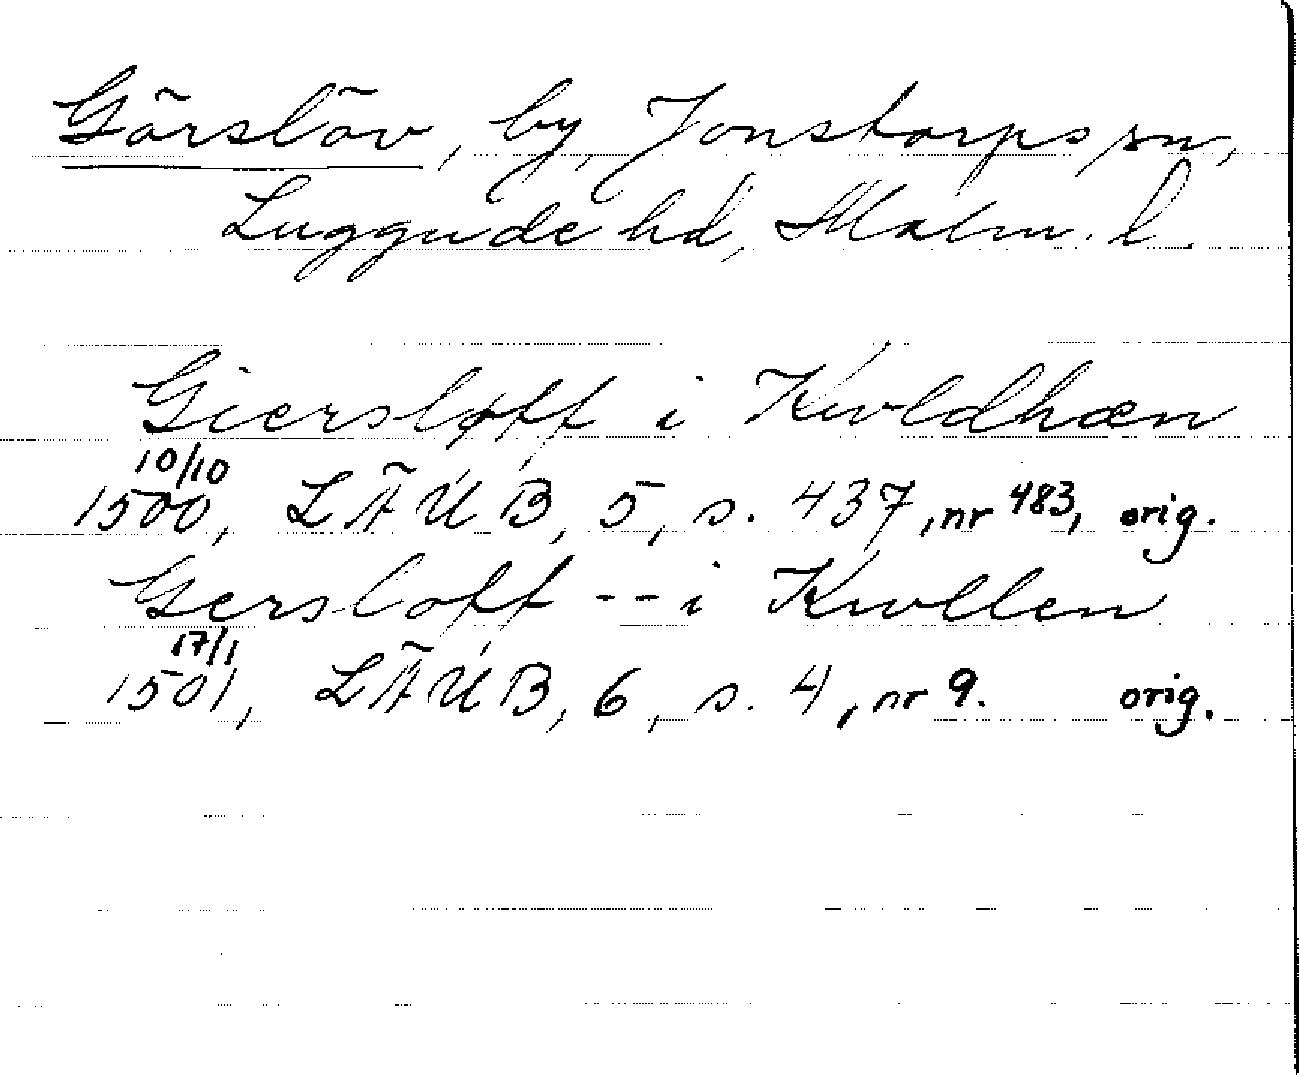 Görslöv, by, Jonstorps sn,
Luggude hd, Malm. l.
Giersløff i Kwldhæn
10/10
1500, LÄUB, 5, s. 437, nr 483, orig.
Gersloff -- i Kwllen
17/1
1501, LÄUB, 6, s. 4, nr 9. orig.